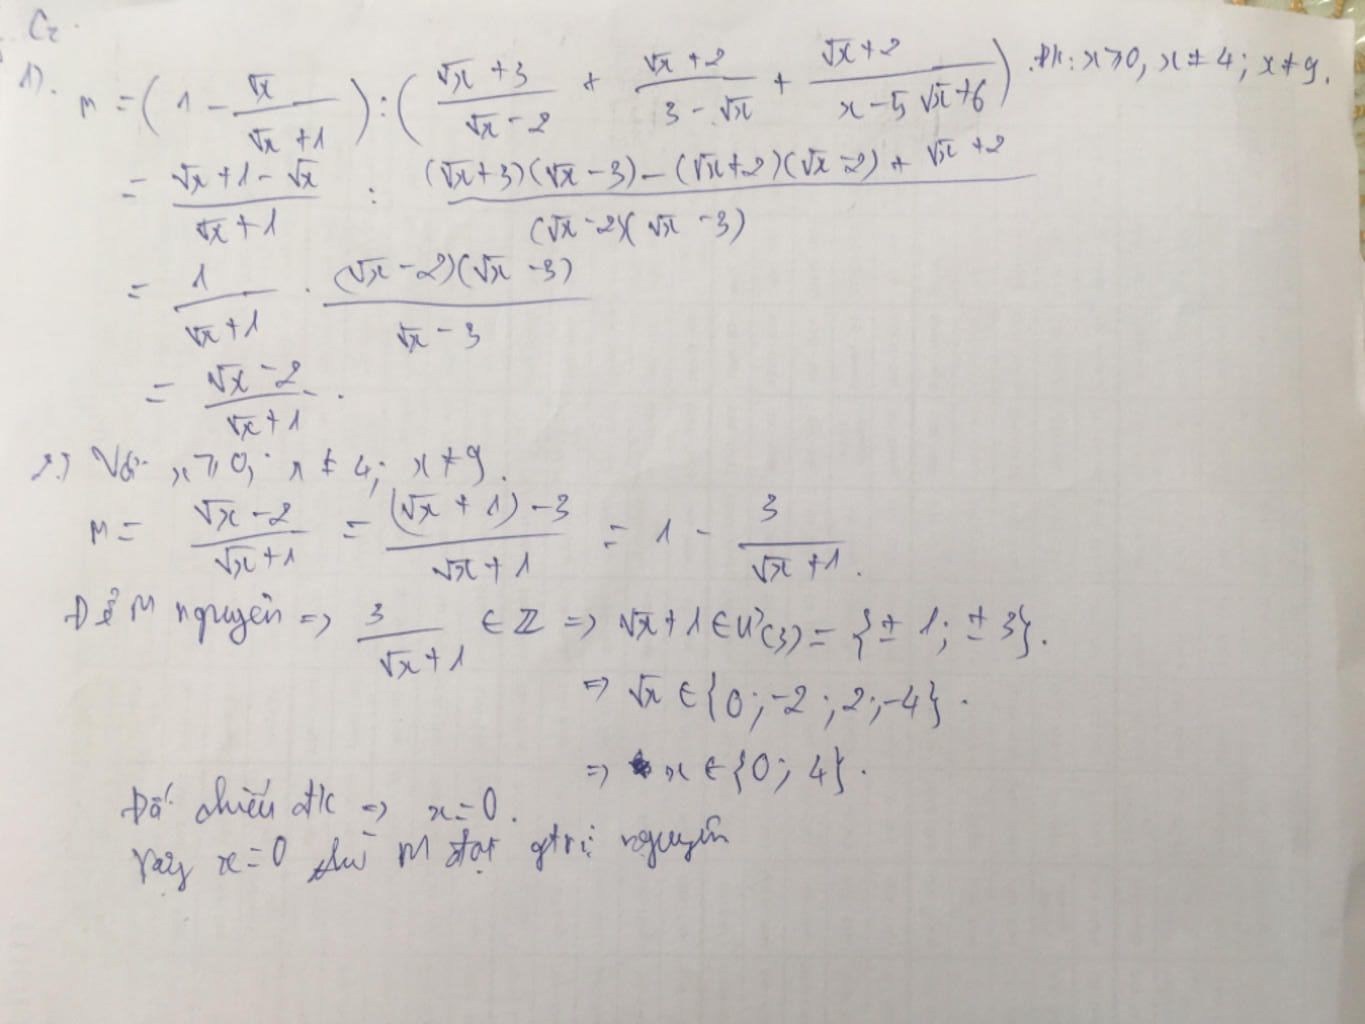 C2
1). M = (1 - √x/(√x+1)) : ((√x+3)/(√x-2) + (√x+2)/(3-√x) + (√x+2)/(x-5√x+6)) .ĐK: x≥0, x≠4; x≠9.
= (√x+1-√x)/(√x+1) : ((√x+3)(√x-3)-(√x+2)(√x-2)+√x+2)/((√x-2)(√x-3))
= 1/(√x+1) . ((√x-2)(√x-3))/(√x-3)
= (√x-2)/(√x+1).
2.) Với x≥0; x≠4; x≠9.
M = (√x-2)/(√x+1) = ((√x+1)-3)/(√x+1) = 1 - 3/(√x+1).
Để M nguyên => 3/(√x+1) ∈ ℤ => √x+1 ∈ Ư(3) = {±1; ±3}.
=> √x ∈ {0; -2; 2; -4}.
=> x ∈ {0; 4}.
Đối chiếu đk => x=0.
Vậy x=0 thì M đạt gtrị nguyên